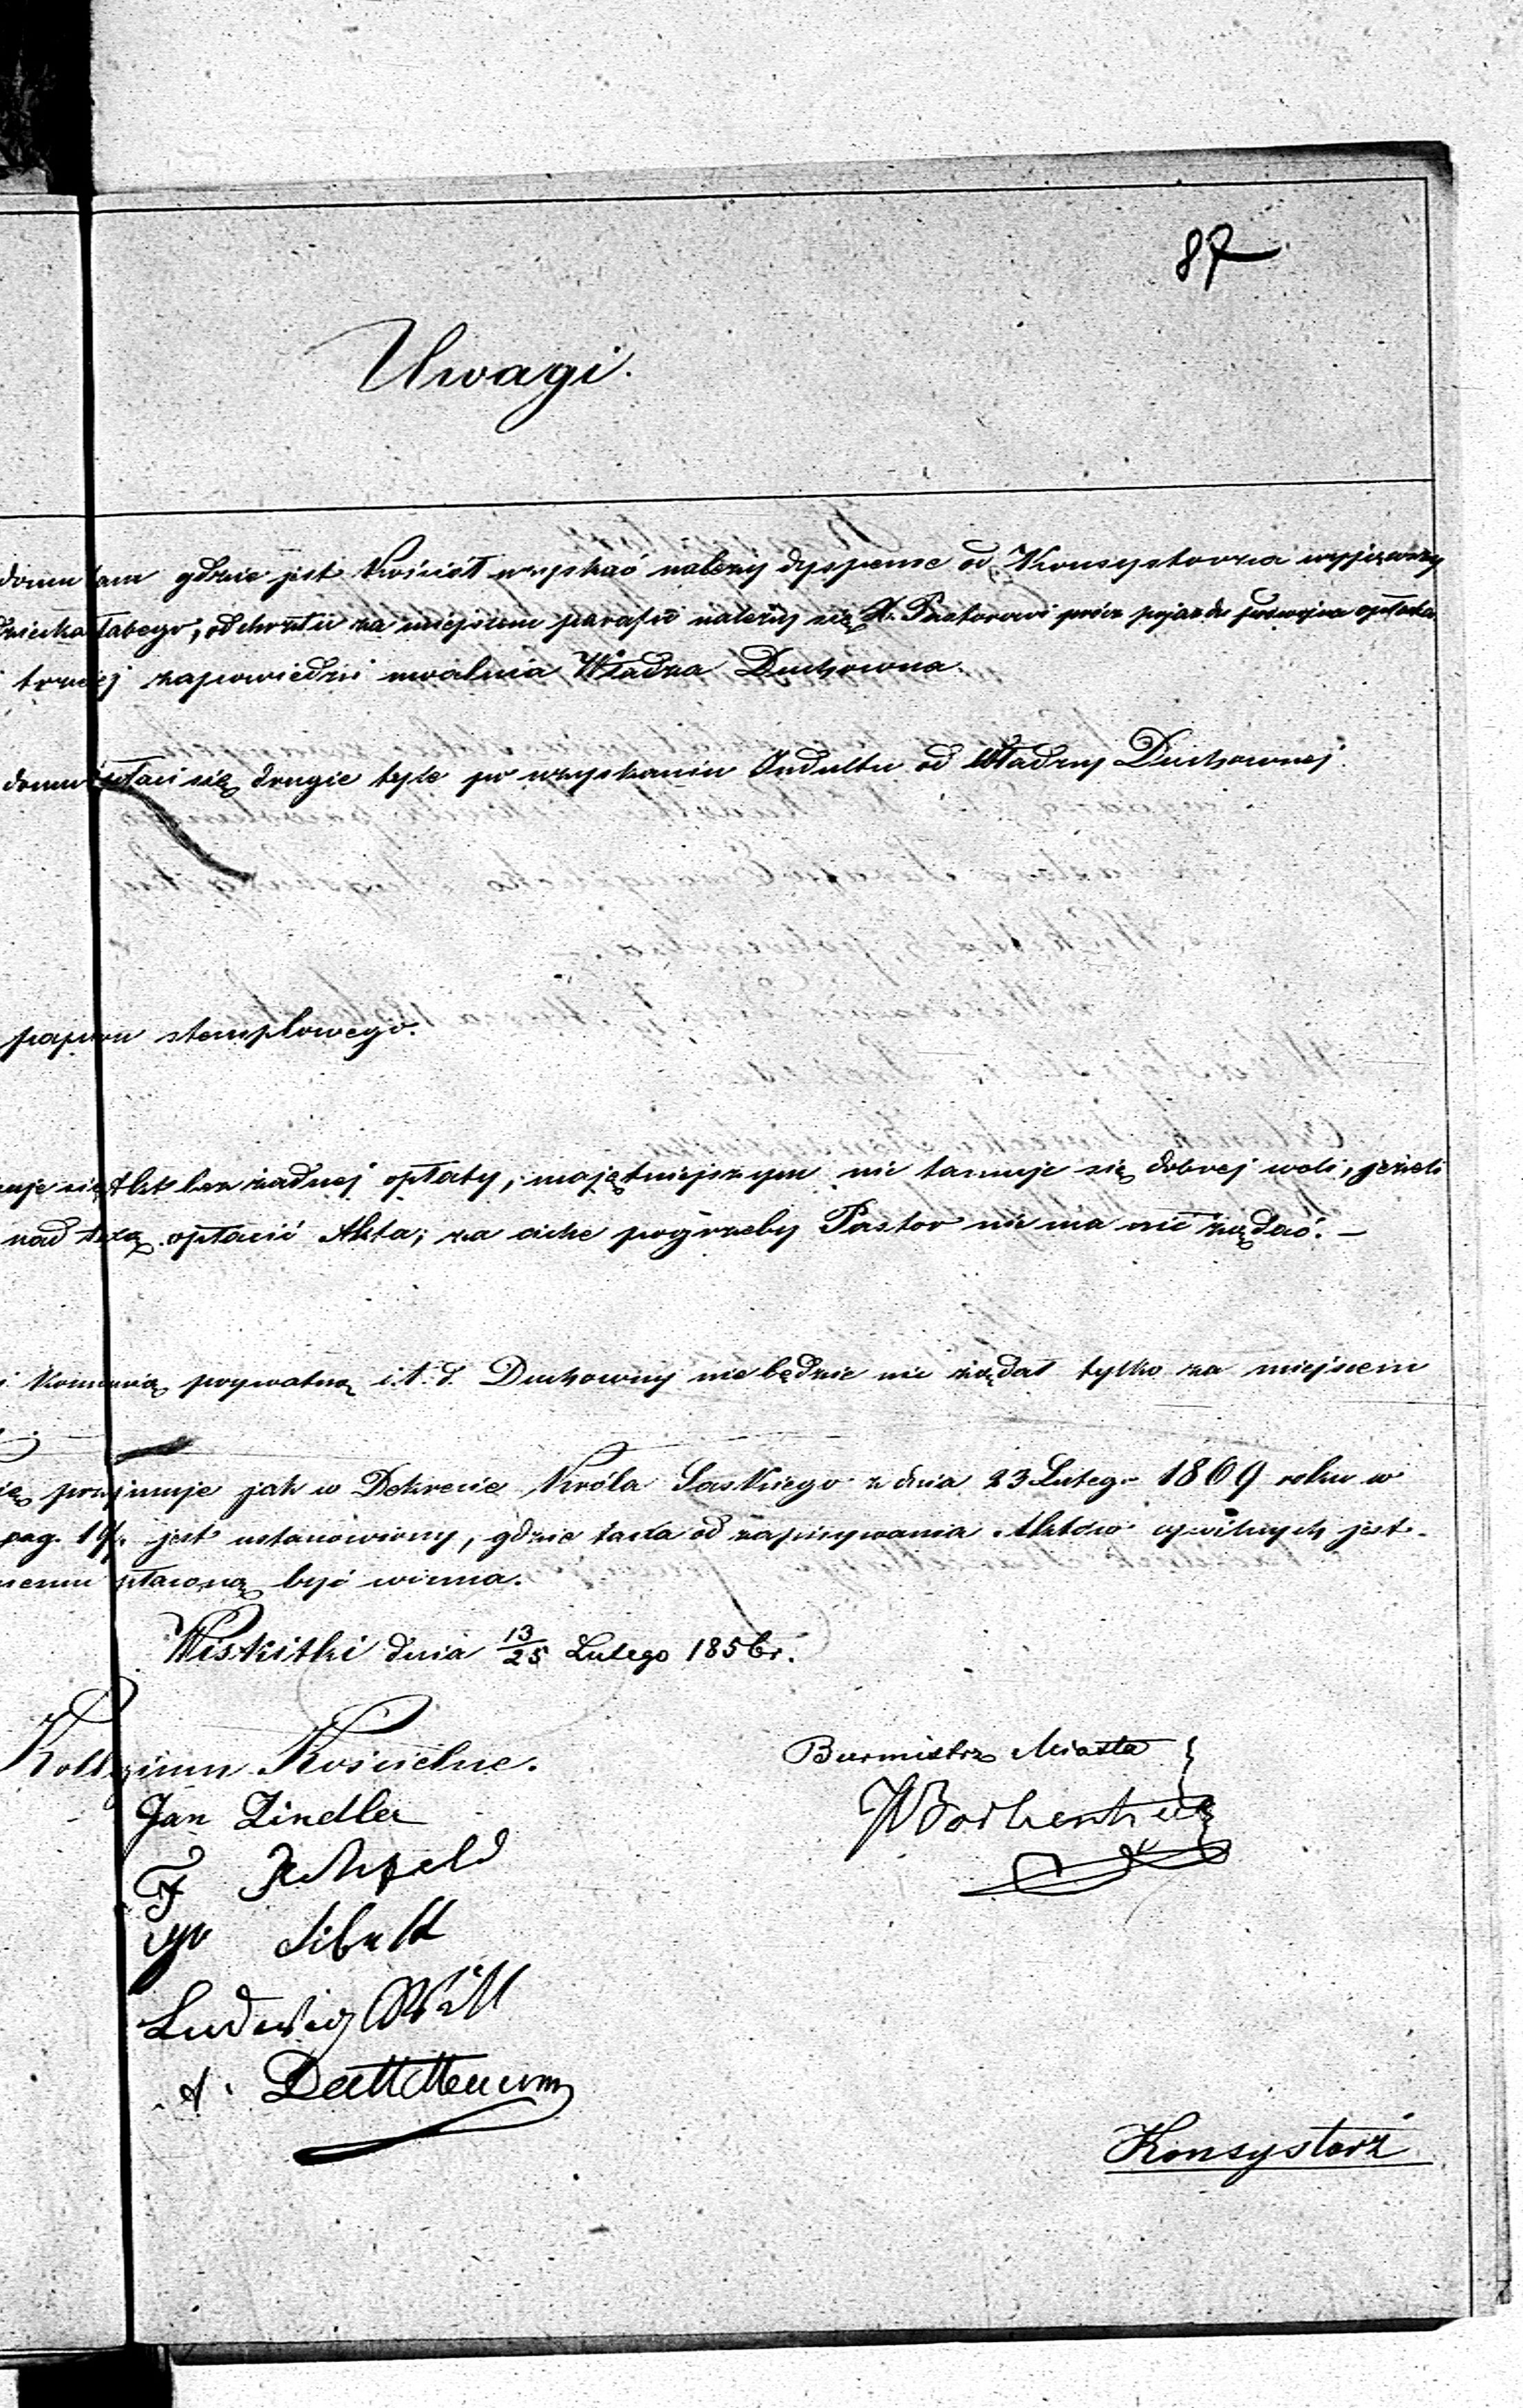 87
Uwagi.
domu tam gdzie jest Kościół uzyskać należy dyspense od Konsystorza wyjąwszy
dziecka słabego; od chrztu za miejscem parafii należy się X. Pastorowi prócz pojazdu podwójna opłata
trzeciej zapowiedzi uwalnia Władza Duchowna.
domu płaci się drugie tyle po uzyskaniu Indultu od Władzy Duchownej.
papieru stemplowego.
się Akt bez żadnej opłaty, majętniejszym nie tamuje się dobrej woli, jeżeli
nad taxę opłacić Akta; za ciche pogrzeby Pastor nie ma nic żądać. —
i Komunią prywatną i.t.d. Duchowny nie będzie nic żądał tylko za miejscem
się przyjmuje jak w Dekrecie Króla Saskiego z dnia 23 Lutego 1809 roku w
pag. jest ustanowiony, gdzie taxa od zapisywania Aktów cywilnych jest
płaconą być winna.
Wiskitki dnia 13/25 Lutego 1856 r.
Kollegium Kościelne.
Burmistrz Miasta
Jan Zindler
F
Ludwig Witt
A.
Konsystorz